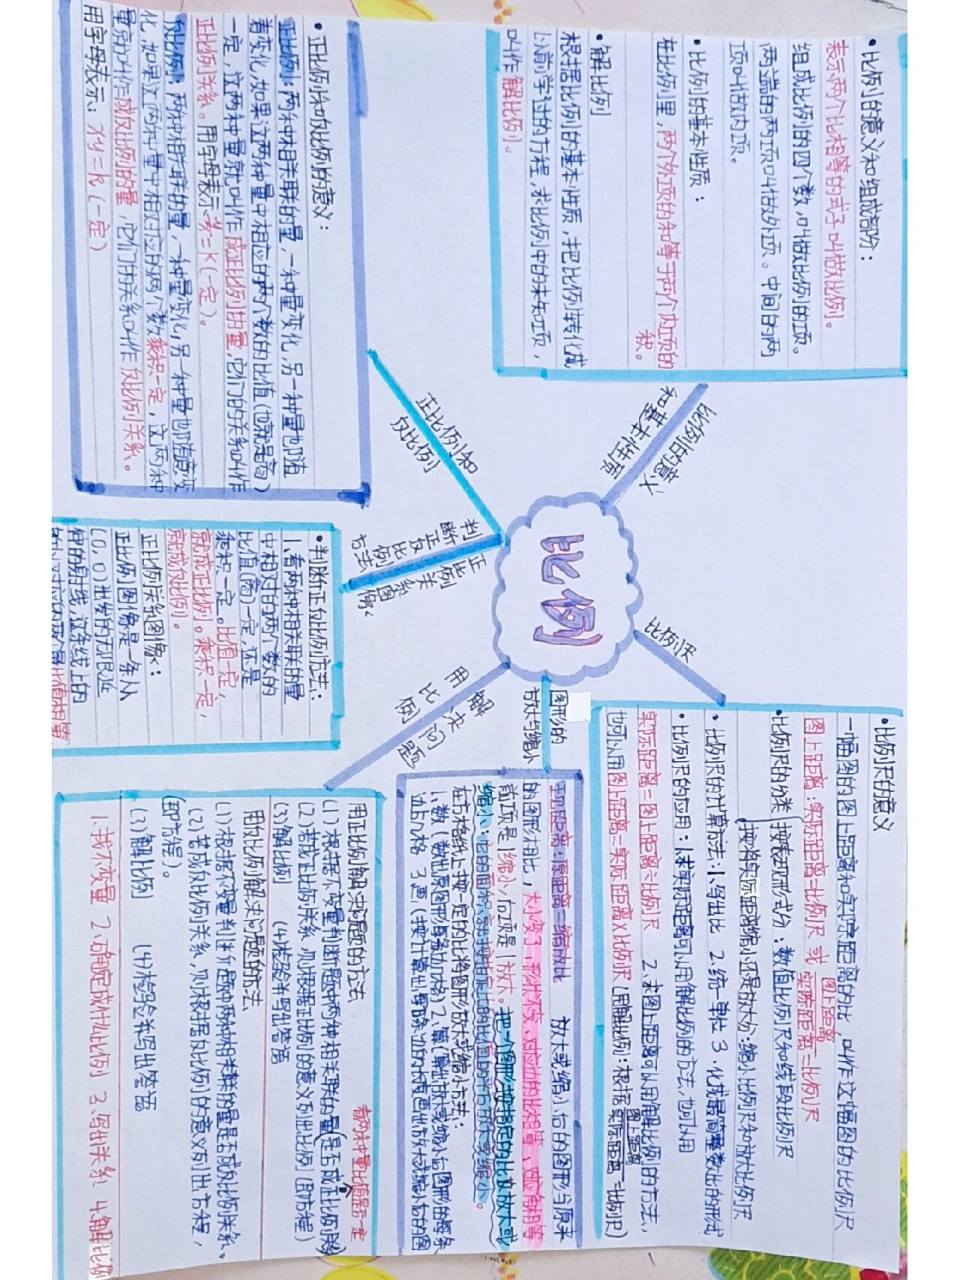 比例
比例的意义
和基本性质
•比例的意义和组成部分：
表示两个比相等的式子叫做比例。
组成比例的四个数，叫做比例的项。
两端的两项叫做外项。中间的两
项叫做内项。
•比例的基本性质：
在比例里，两个外项的和等于两个内项的
积。
•解比例
根据比例的基本性质，把比例转化成
以前学过的方程，求比例中的未知项，
叫作解比例。
正比例和
反比例
•正比例和反比例的意义：
正比例：两种相关联的量，一种量变化，另一种量也随
着变化，如果这两种量中相应的两个数的比值(也就是商)
一定，这两种量就叫作成正比例的量，它们的关系叫作
正比例关系。用字母表示：
=K(一定)。
反比例：两种相关联的量，一种量变化，另一种量也随着变
化，如果这两种量中相对应的两个数乘积一定，这两种
量就叫作成反比例的量，它们的关系叫作反比例关系。
用字母表示：xy=k(一定)
判断正反比例方法
正比例关系图像
•判断正反比例方法：
1、看两种相关联的量
中相对的两个数的
比值(商)一定，还是
乘积一定。比值一定，
就成正比例。乘积一定，
就成反比例。
正比例关系图像：
正比例图像是一条从
(0，0)出发的无限延
伸的射线，这条线上的
比值相等
比例尺
•比例尺的意义
一幅图的图上距离和实际距离的比，叫作这幅图的比例尺
图上距离：实际距离=比例尺 或 图上距离/实际距离=比例尺
•比例尺的分类 按表现形式分：数值比例尺和线段比例尺
按将实际距离缩小还是放大分：缩小比例尺和放大比例尺
•比例尺的计算方法：1.写出比 2.统一单位 3.化成最简整数比的形式
•比例尺的应用：1.求实际距离可以用解比例的方法，也可以用
实际距离=图上距离÷比例尺 2.求图上距离可以用解比例的方法，
也可以用图上距离=实际距离×比例尺(用解比例：根据 图上距离/实际距离=比例尺)
图形的
放大与缩小
放大或缩小后的图形与原来
的图形相比，大小变了，形状不变，对应边的比相等，对应角相等
前项是1缩小，后项是1放大。把一个图形按指定的比来放大或
缩小
在方格纸上按一定的比将图形放大或缩小方法：
1.数(数出原图形每条边的格) 2.算(算出放大或缩小后图形的每条
边占几格 3.画(按计算出每条边的长度画出放大或缩小后的图
用比例
解决问题
用正比例解决问题的方法
看两种量比值是否一定
(1)根据不变量判断是题中两种相关联的量是否成正比例
(2)若成正比例关系，则根据正比例的意义列出比例(即方程)
(3)解比例 (4)检验并写出答语
用反比例解决问题的方法
(1)根据不变量判断题中两种相关联的量是否成反比例关系、
(2)若成反比例关系，则根据反比例的意义列出方程，
(即方程)。
(3)解比例 (4)检验并写出答语
1.找不变量 2.确定成什么比例 3.写出关系 4.解比例